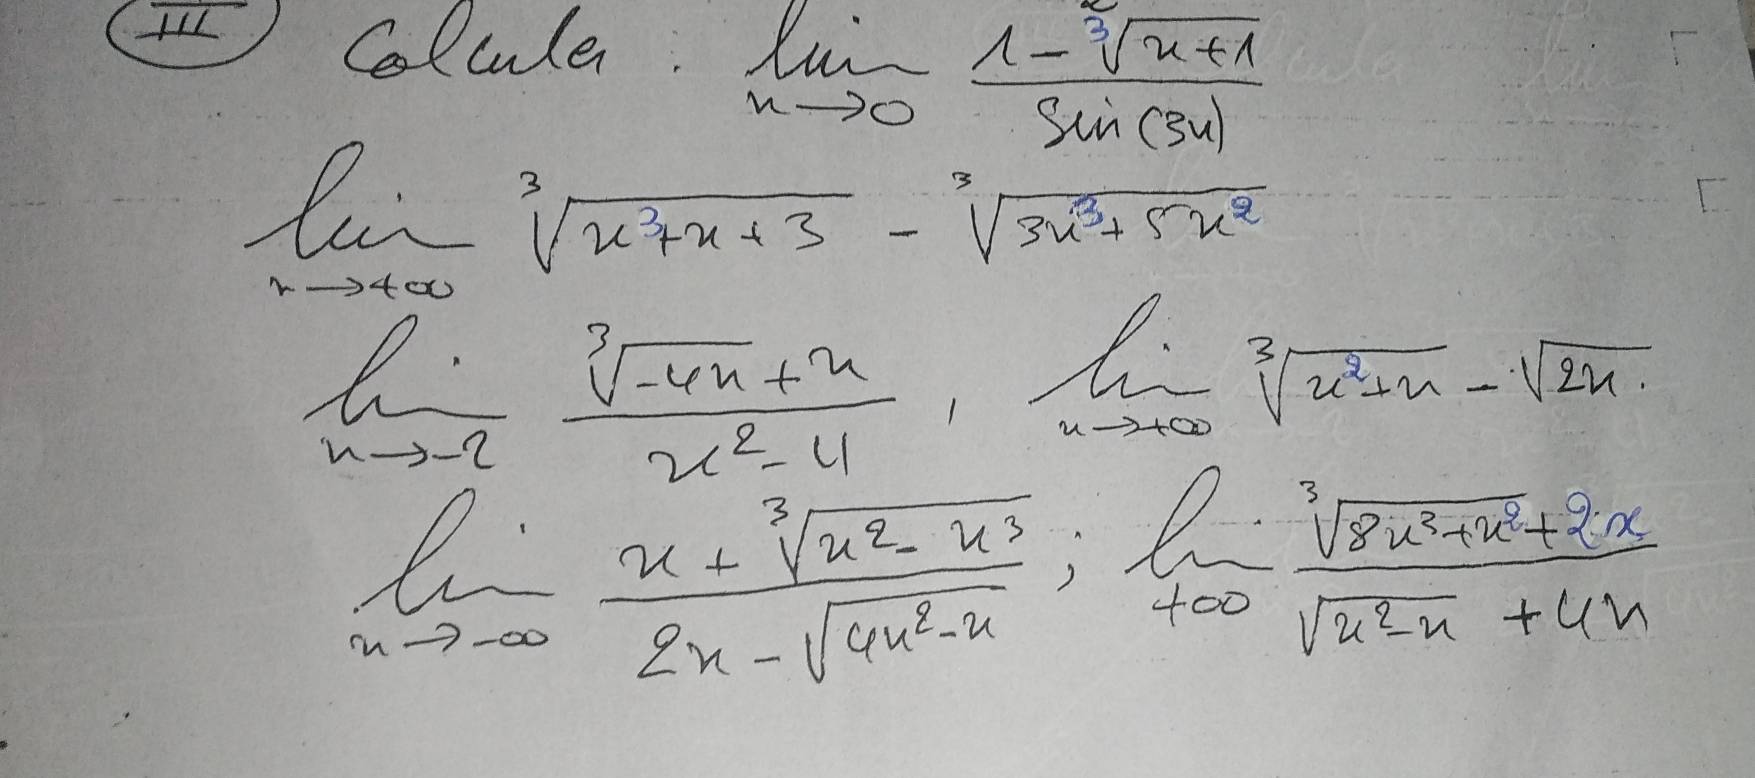 III Calculer : lim x→0 (1 - ∛(x+1)) / sin(3x)
lim x→+∞ ∛(x³+x+3) - ∛(3x³+5x²)
lim x→-2 (∛(-4x) + x) / (x²-4) , lim x→+∞ ∛(x²+x) - √(2x).
lim x→-∞ (x + ∛(x²-x³)) / (2x - √(4x²-x)) ; lim +∞ (∛(8x³+x²) + 2x) / (√(x²-x) + 4x)